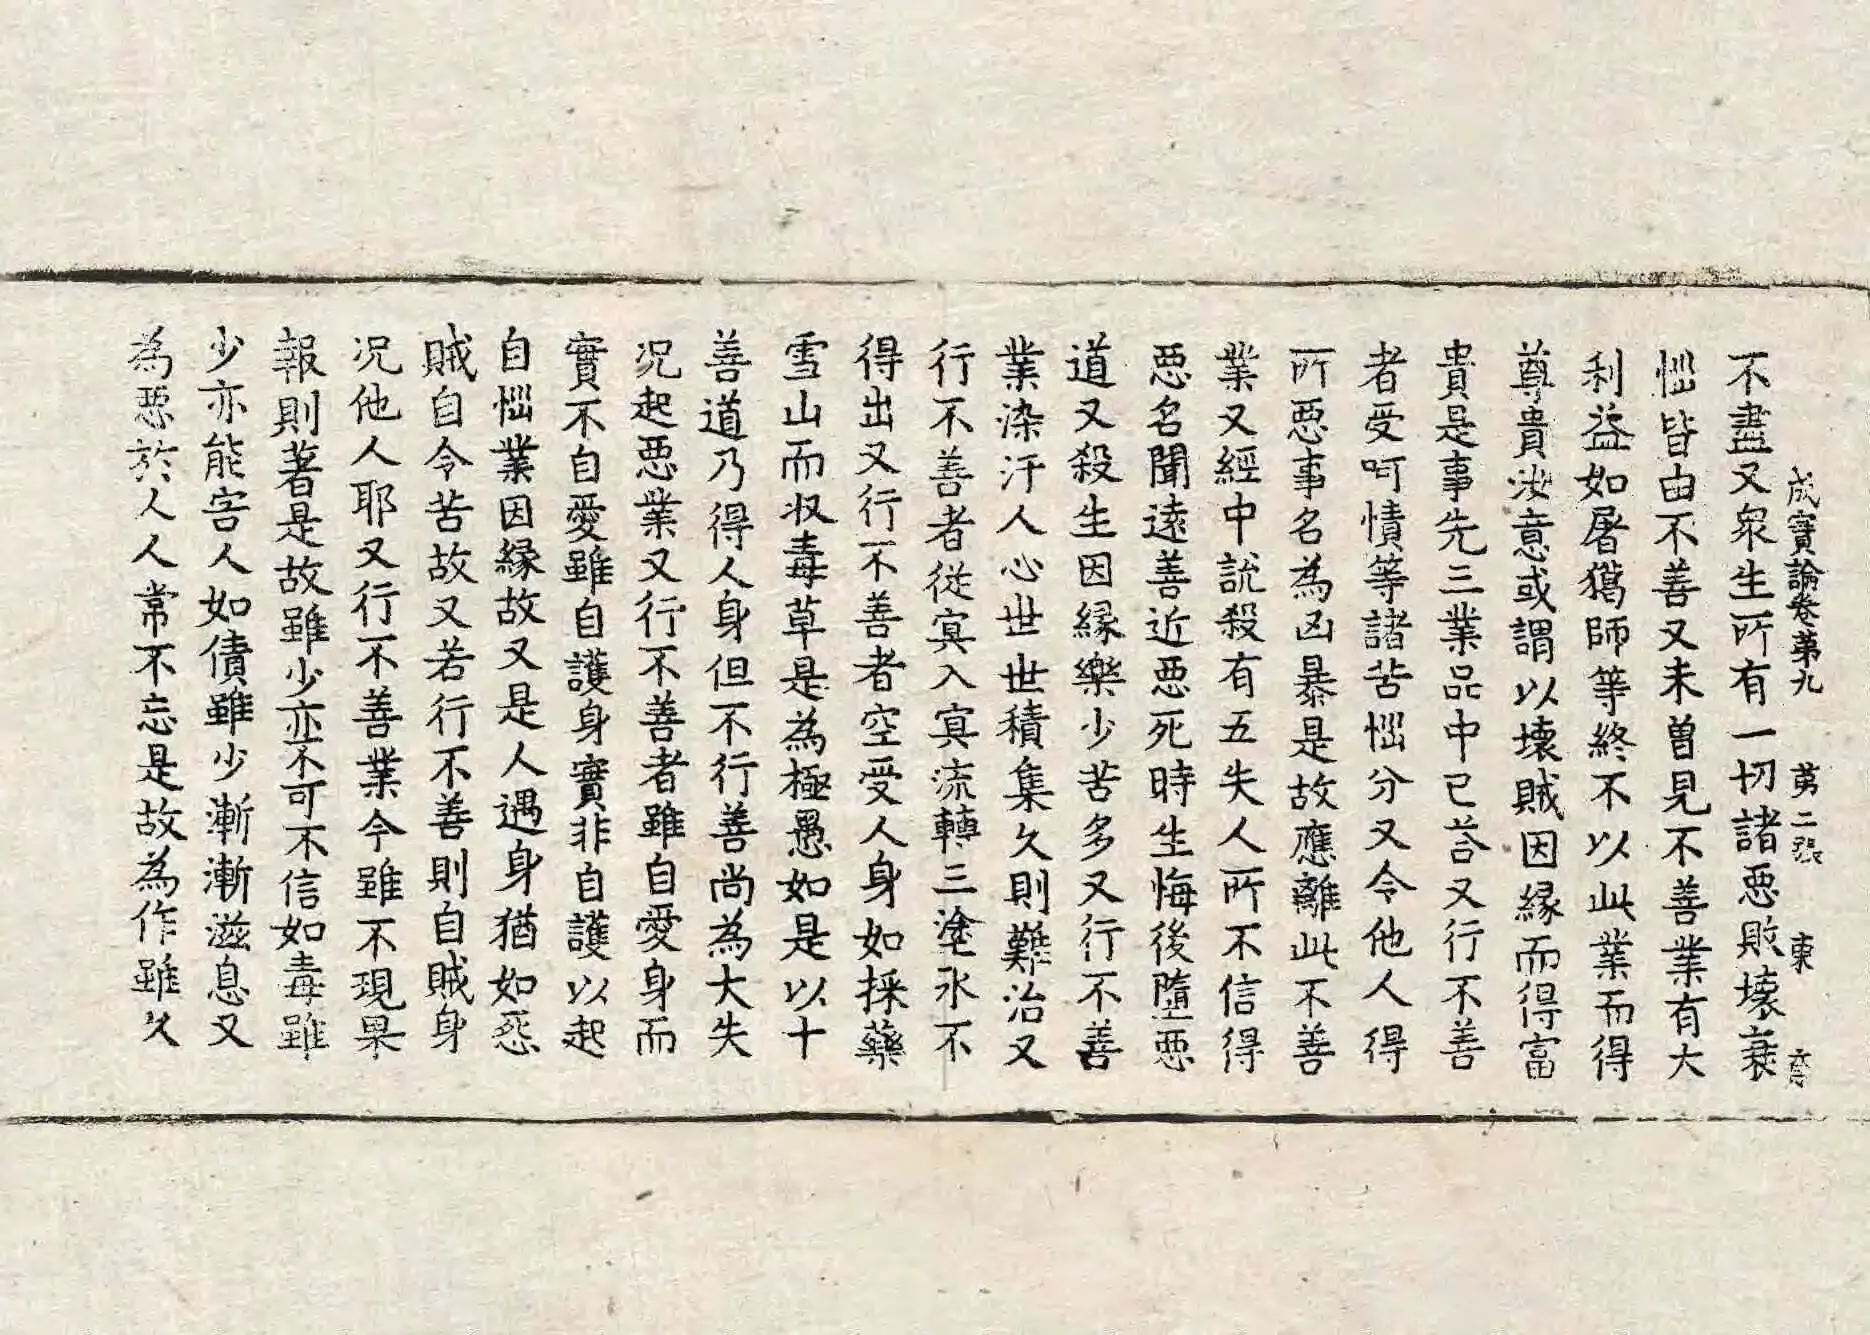 成實論卷第九 苐二張 東
不盡又衆生所有一切諸惡敗壞衰
惱皆由不善又未曽見不善業有大
利益如屠獦師等終不以此業而得
尊貴汝意或謂以壊賊因縁而得富
貴是事先三業品中已荅又行不善
者受呵憒等諸苦惱分又令他人得
所惡事名為凶暴是故應離此不善
業又經中說殺有五失人所不信得
惡名聞遠善近惡死時生悔後墮惡
道又殺生因縁樂少苦多又行不善
業染汙人心世世積集久則難治又
行不善者從㝠入㝠流轉三塗永不
得出又行不善者空受人身如採藥
雪山而収毒草是為極愚如是以十
善道乃得人身但不行善尚為大失
况起惡業又行不善者雖自愛身而
實不自愛雖自護身實非自護以起
自惱業因縁故又是人遇身猶如惡
賊自令苦故又若行不善則自賊身
况他人耶又行不善業今雖不現果
報則著是故雖少亦不可不信如毒雖
少亦能害人如債雖少漸漸滋息又
為惡於人人常不忘是故為作雖久